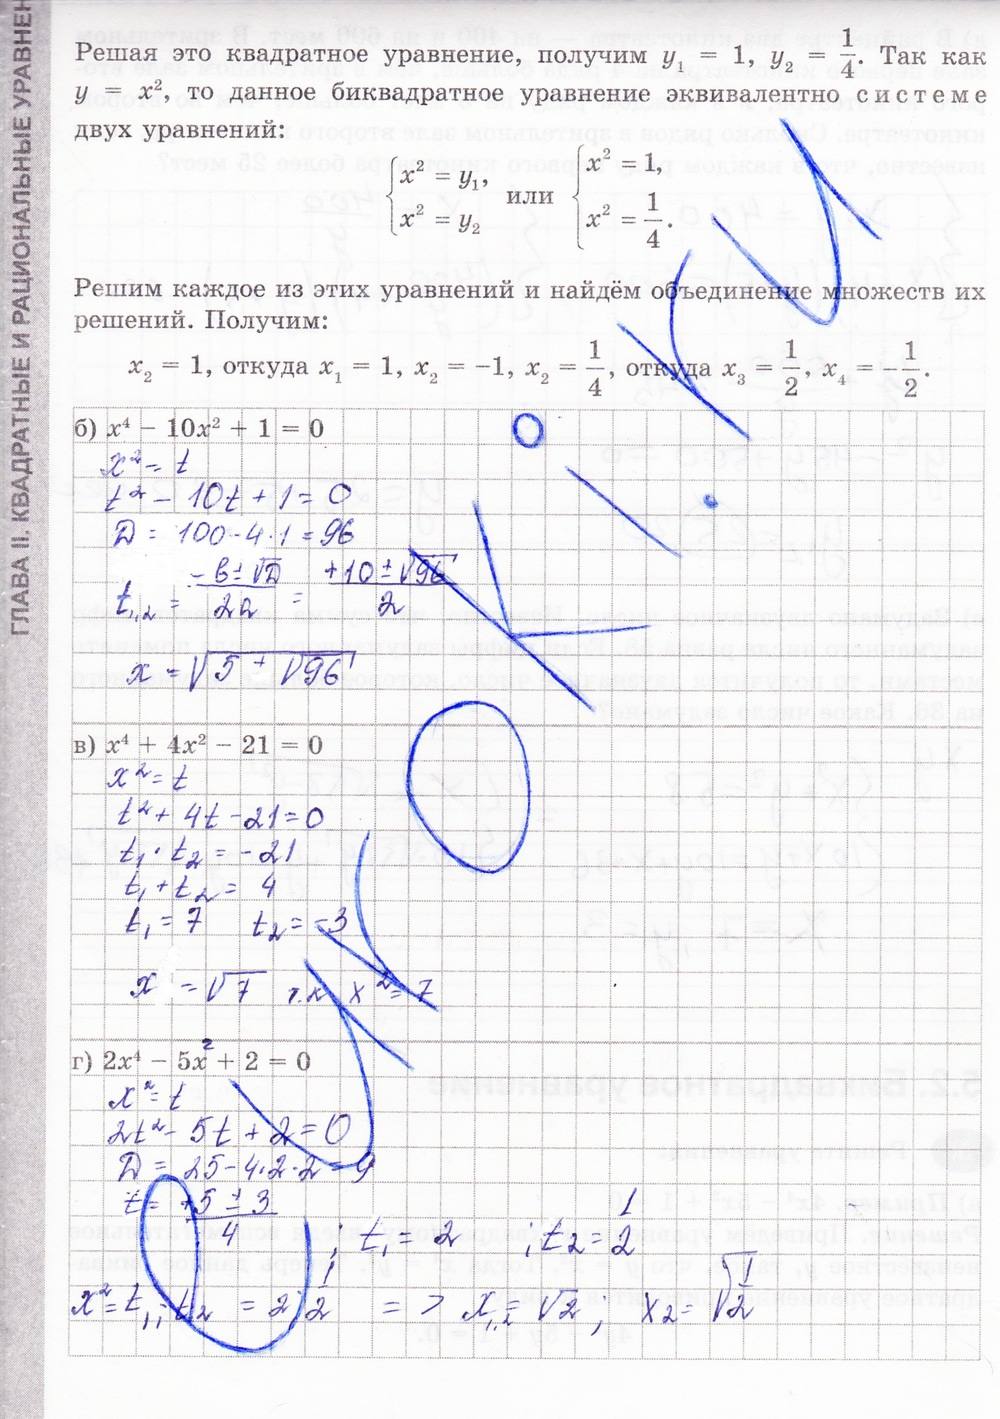 ГЛАВА II. КВАДРАТНЫЕ И РАЦИОНАЛЬНЫЕ УРАВНЕН
Решая это квадратное уравнение, получим y₁ = 1, y₂ = 1/4. Так как
y = x², то данное биквадратное уравнение эквивалентно системе
двух уравнений:
{x² = y₁, x² = y₂ или {x² = 1, x² = 1/4.
Решим каждое из этих уравнений и найдём объединение множеств их
решений. Получим:
x₂ = 1, откуда x₁ = 1, x₂ = −1, x₂ = 1/4, откуда x₃ = 1/2, x₄ = −1/2.
б) x⁴ − 10x² + 1 = 0
x² = t
t² − 10t + 1 = 0
D = 100 − 4·1 = 96
t₁,₂ = (−b ± √D)/2a = (+10 ± √96)/2
x = √(5 ± √96)
в) x⁴ + 4x² − 21 = 0
x² = t
t² + 4t − 21 = 0
t₁ · t₂ = −21
t₁ + t₂ = 4
t₁ = 7 t₂ = −3
x = √7 т.к x² = 7
г) 2x⁴ − 5x² + 2 = 0
x² = t
2t² − 5t + 2 = 0
D = 25 − 4·2·2 = 9
t = (+5 ± 3)/4 ; t₁ = 2 ; t₂ = 1/2
x² = t₁; t₂ = 2; 1/2 => x₁,₂ = √2 ; x₂ = √(1/2)